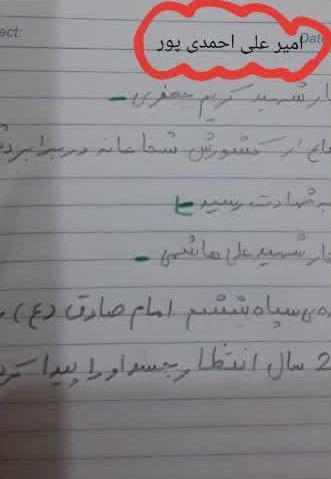 ect:
Dat
امیر علی احمدی پور
ار شهید کریم جعفری -
اع از کشورش شجاعانه در برابر دش
به شهادت رسید
دار شهید علی هاشمی -
ه‌ی سپاه ششم امام صادق (ع)
2 سال انتظار جسد او را پیدا کرد